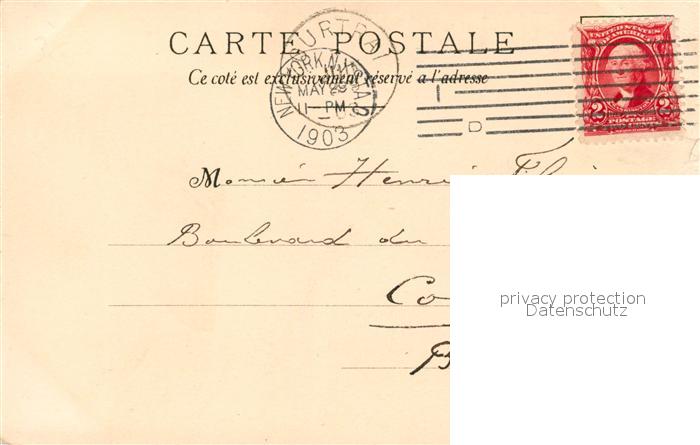 CARTE POSTALE
Ce coté est exclusivement réservé a l'adresse
COURTRAI
NEW YORK, N.Y.
MAY
11 PM
1903
D
UNITED STATES
OF AMERICA
2 2
POSTAGE
Monsieur Henri
Boulevard du
Co
B
privacy protection
Datenschutz